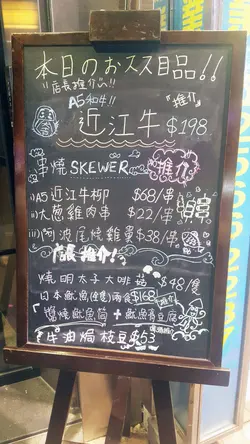 本日のおススメ品!!
"店長推介"!!
A5和牛!!
"推介"
近江牛 $198
串燒 SKEWER 推介
i) A5 近江牛柳 $68/串
ii) 大葱雞肉串 $22/串
iii) 阿波尾燒雞 $38/串
店長推介!
燒明太子大啡菇 $48/食
日本魷魚(壹隻)兩食 $168
醬燒魷魚筒 + 魷魚豆腐
牛油焗枝豆 $53